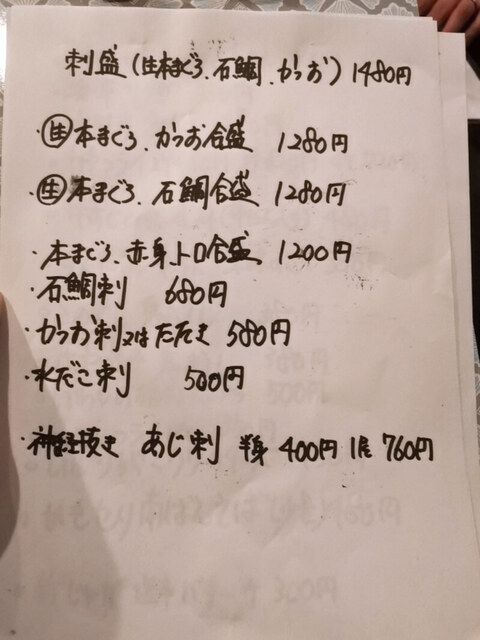 刺盛(生本まぐろ、石鯛、かつお) 1480円
・生本まぐろ、かつお合盛 1280円
・生本まぐろ、石鯛合盛 1280円
・本まぐろ、赤身、トロ合盛 1200円
・石鯛刺 680円
・かつお刺又はたたき 580円
・水だこ刺 500円
・神経抜き あじ刺 半身 400円 1尾 760円